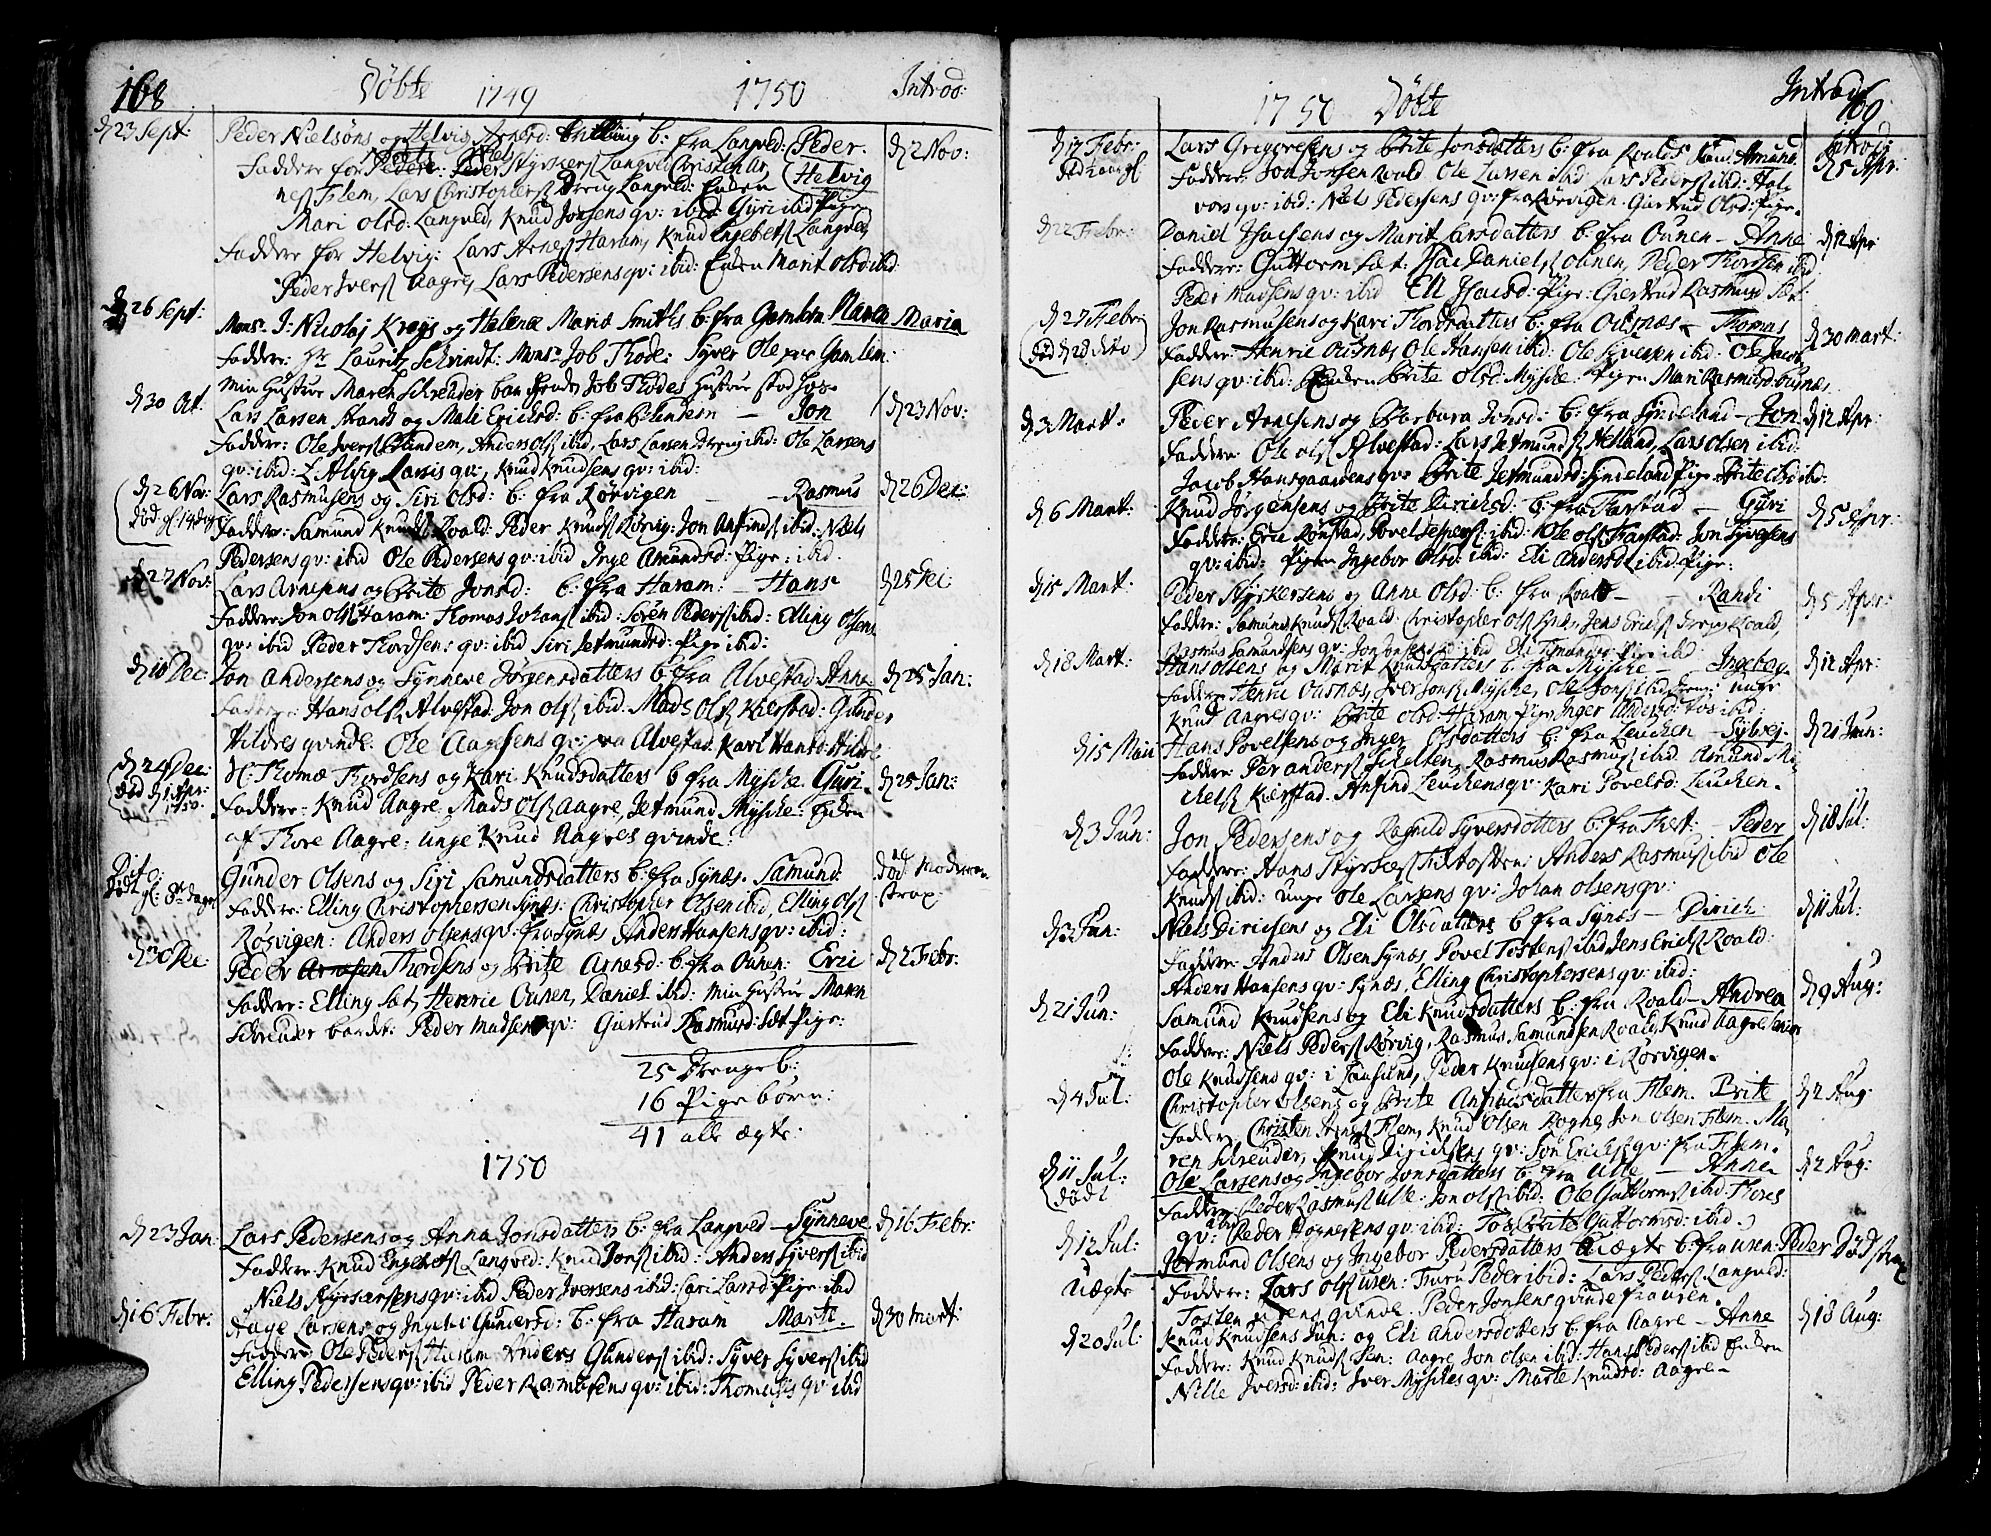 168 Döbte 1749 1750 Introd:
d 23 Sept: Peder Nielsöns og Helvis Arnesd: b: fra Langved: Peder. d 2 Nov:
Faddere for Peder: Styrkers Langved Christen Ar
nes Flem, Lars Christophers Dreng Langved: Enken Helvig
Mari Olsd: Langved, Knud Jonsens qv: ibid: Gyri ibid Pige
Faddere for Helvig: Lars Arnes Haram, Knud Engebrets Langved,
Peder Ivers Aagre, Lars Pedersens qv: ibid: Enken Marit Olsd: ibid
d 26 Sept: Mons: J: Nicolaj Krogs og Helenæ Mariæ Smiths b: fra Gamlem Maren Maria
Faddere: Hr Lauritz Schrindt: Mons: Job Thode: Syver Ole Gamlem:
Min Hustrue Maren Schreuder bar Frender Job Thodes Hustrue stod hos.
d 30 Oct. Lars Larsen Brands og Mali Ericksd: b: fra Jon d 23 Nov:
Faddere: Ole Ivers, Anders Ols ibid, Lars Larsen Dreng ibid: Ole Larsens
qv: ibid: Larsis qv: Knud Knudsens qv: ibid:
d 26 Nov: Lars Rasmusens og Siri Olsd: b: fra Rörvigen - Rasmus d 26 Dec:
död gl: 14 dage Faddere: Samund Knuds Roald: Peder Knuds Rörvig: Jon Anfinds ibid: Niels
Pedersens qv: ibid Ole Pedersens qv: ibid Inge Amundsd: Pige: ibid.
d 27 Nov: Lars Arnesens og Brite Jonsd: b: fra Haram: - Hans d 25
Faddere: Jon Ols Haram: Thomas Johans ibid: Sören Peders ibid: Elling Olsens
qv: ibid Peder Thordsens qv: ibid Siri Jetmundsd: Pige ibid:
d 10 Dec: Jon Andersens og Synneve Jörgensdatters b: fra Alvestad. Anne d 25 Jan:
Faddere: Hans Ols Alvestad: Jon Ols ibid. Mads Ols Kierstad: Gunder
Hildres qvinde. Ole Aamsens qv: fra Alvestad. Kari Hansd: Hildre
d 24 Dec: Thomæ Thordsens og Kari Knudsdatters b: fra Myscke. Guri. d 25 Jan:
död d 1 Apr: 1750. Faddere: Knud Aagre, Mads Ols Aagre, Jetmund Myscke: Enken
af Thore Aagre: unge Knud Aagres qvinde:
Dito Gunder Olsens og Siri Samundsdatters b: fra Synæs. Samund. död Moderen
död gl: 8te dage Faddere: Elling Christophersen Synæs: Christopher Olsen ibid, Elling Ols strax:
Rörvigen: Anders Olsens qv: fra Synæs Anders Hansens qv: ibid:
d 30 Dec: Peder Thordsens og Brite Arnesd: b: fra Ounen: Eric d 2 Febr:
Faddere: Elling Sæt, Henric Ounen, Daniel ibid: Min Hustrue Maren
Schreuder bardt: Peder Madsens qv: Giertrud Rasmusd: Sæt Pige:
25 Drenge b:
16 Pige börn:
41 alle ægte:
1750
d 23 Jan: Lars Pedersens og Anna Jonsdatters b: fra Langved - Synneve d 16 Febr:
Faddere: Knud Engebrets Langved: Knud Jons ibid: Anders Syvers ibid
Niels Styrkersens qv: ibid Peder Iversens ibid: Kari Larsd: Pige ibid
d 16 Febr: Aage Larsens og Ingebor Gundersd: b: fra Haram Marte. d 30 Mart:
Faddere Ole Peders Haram Anders Gunders ibid: Syver Syvers ibid
Elling Pedersens qv: ibid Peder Rasmusens qv: ibid: Thomases qv ibid
1750 Döbte Introd: 169
d 17 Febr: Lars Gregoresens og Brite Jonsdatters b: fra Roald Amund. Introd:
Faddere: Jon Jonsen Roald Ole Larsen ibid: Lars Peders ibid: Hal- d 5 Apr:
vors qv: ibid: Niels Pedersens qv: fra Rörvigen. Giertrud Olsd: Pige.
d 22 Febr: Daniel Isacsens og Marit Larsdatters b: fra Ounen - Anne d 12 Apr
Faddere: Guttorm Sæt: Isac Daniels Ounen, Peder Thordsen ibid
Peder Madsens qv: ibid Eli Isacsd: Pige: Giertrud Rasmusd Sæt.
d 27 Febr: Jon Rasmusens og Kari Thordsdatters b: fra Ousnæs - Thomas d 30 Mart:
(död d 28 dito) Faddere: Henric Ousnæs Ole Hansen ibid: Ole Syversen ibid: Ole Jacob
sens qv: ibid: Enken Brite Olsd: Myscke: Pigen Mari Rasmusd: Ousnæs
d 3 Mart: Peder Arnesens og Barbara Jonsd: b: fra Synneland - Jon. d 12 Apr:
Faddere: Ole Ols Alvestad: Lars Jetmunds Helland, Lars Olsen ibid:
Jacob Hansgaardens qv: Brite Jetmundsd: Synneland Pige Brite Olsd ibid:
d 6 Mart: Knud Jörgensens og Brite Dirichsd: b: fra Farstad - Gyri d 5 Apr:
Faddere: Eric Rönstad, Povel Jespers ibid: Ole Ols Farstad: Jon Syversens
qv: ibid: Pigen Ingebor Olsd: ibid: Eli Andersd ibid Pige:
d 15 Mart: Peder Styrkersens og Anne Olsd: b: fra Roald - - Randi d 5 Apr:
Faddere: Samund Knuds Roald: Christopher Ols Synæs, Jens Ericks Dreng Roald,
Rasmus Samundsens qv: Jon ibid Eli Pige ibid
d 18 Mart: Hans Olsens og Marit Knudsdatters b: fra Myscke - Ingeborg d 12 Apr:
Faddere: Henric Ousnæs, Iver Jons Myscke, Ole Jons ibid Dreng: unge
Knud Aagres qv: Brite Olsd: Haram Pige Inger Andersd: ibid:
d 15 Mai Hans Povelsens og Inger Olsdatters b: fra Leuchen - Sylvej. d 21 Jun:
Faddere: Per Anders Schelten, Rasmus Rasmus ibid. Amund Mi-
chels Kierstad. Anfind Leuchens qv: Kari Povelsd: Leuchen.
d 3 Jun: Jon Pedersens og Ragnild Syversdatters b: fra - Peder d 18 Jul:
Faddere: Hans: Anders Rasmus ibid Ole
Knuds ibid: unge Ole Larsens qv: Johan Olsens qv:
d 3 Jun: Niels Diricksens og Eli Olsdatters b: fra Synæs - Dirich. d 11 Jul:
Faddere: Anders Olsen Synæs, Povel Tostens ibid Jens Ericks Roald:
Anders Hansens qv: Synæs, Elling Christophersens qv: ibid:
d 21 Jun: Samund Knudsens og Eli Knudsdatters b: fra Roald - Andrea d 9 Aug:
Faddere: Niels Peders Rörvig, Rasmus Samundsen Roald, Knud Aagre Senior
Ole Knudsens qv: i, Peder Knudsens qv: i Rörvigen.
d 4 Jul: Christopher Olsens og Brite Anfindsdatters fra Flem. Brite d 2 Aug
Faddere: Christen Arnes Flem, Knud Olsen Rogne, Jon Olsen Flem. Ma-
ren Schreuder, Knud Diricksens qv: Jon Ericks qv: fra Flem.
d 11 Jul: Ole Larsens og Ingebor Jonsdatters b: fra Ulle - Anne d 2 Aug:
(död Faddere: Peder Rasmus Ulle: Jon Ols ibid: Ole Guttorms ibid. Thores
qv: Peder Hognesens qv: ibid: Brite Guttormsd: ibid.
d 12 Jul: Jetmund Olsens og Ingebor Pedersdatters Uægte b: fra Usen: Peder Död strax
Uægte Faddere: Lars Ols Usen: Peder ibid: Lars Peders Langved:
Tosten qvinde: Peder Jonsens qvinde fra
d 20 Jul: Knud Knudsens Jun: og Eli Andersdatters b: fra Aagre - Anne d 18 Aug:
Faddere: Knud Knuds Sen: Aagre Jon Olsen ibid: Hans Peders ibid Enken
Nille Iversd: ibid: Iver Myschees qv: Marte Knudsd: Aagre -